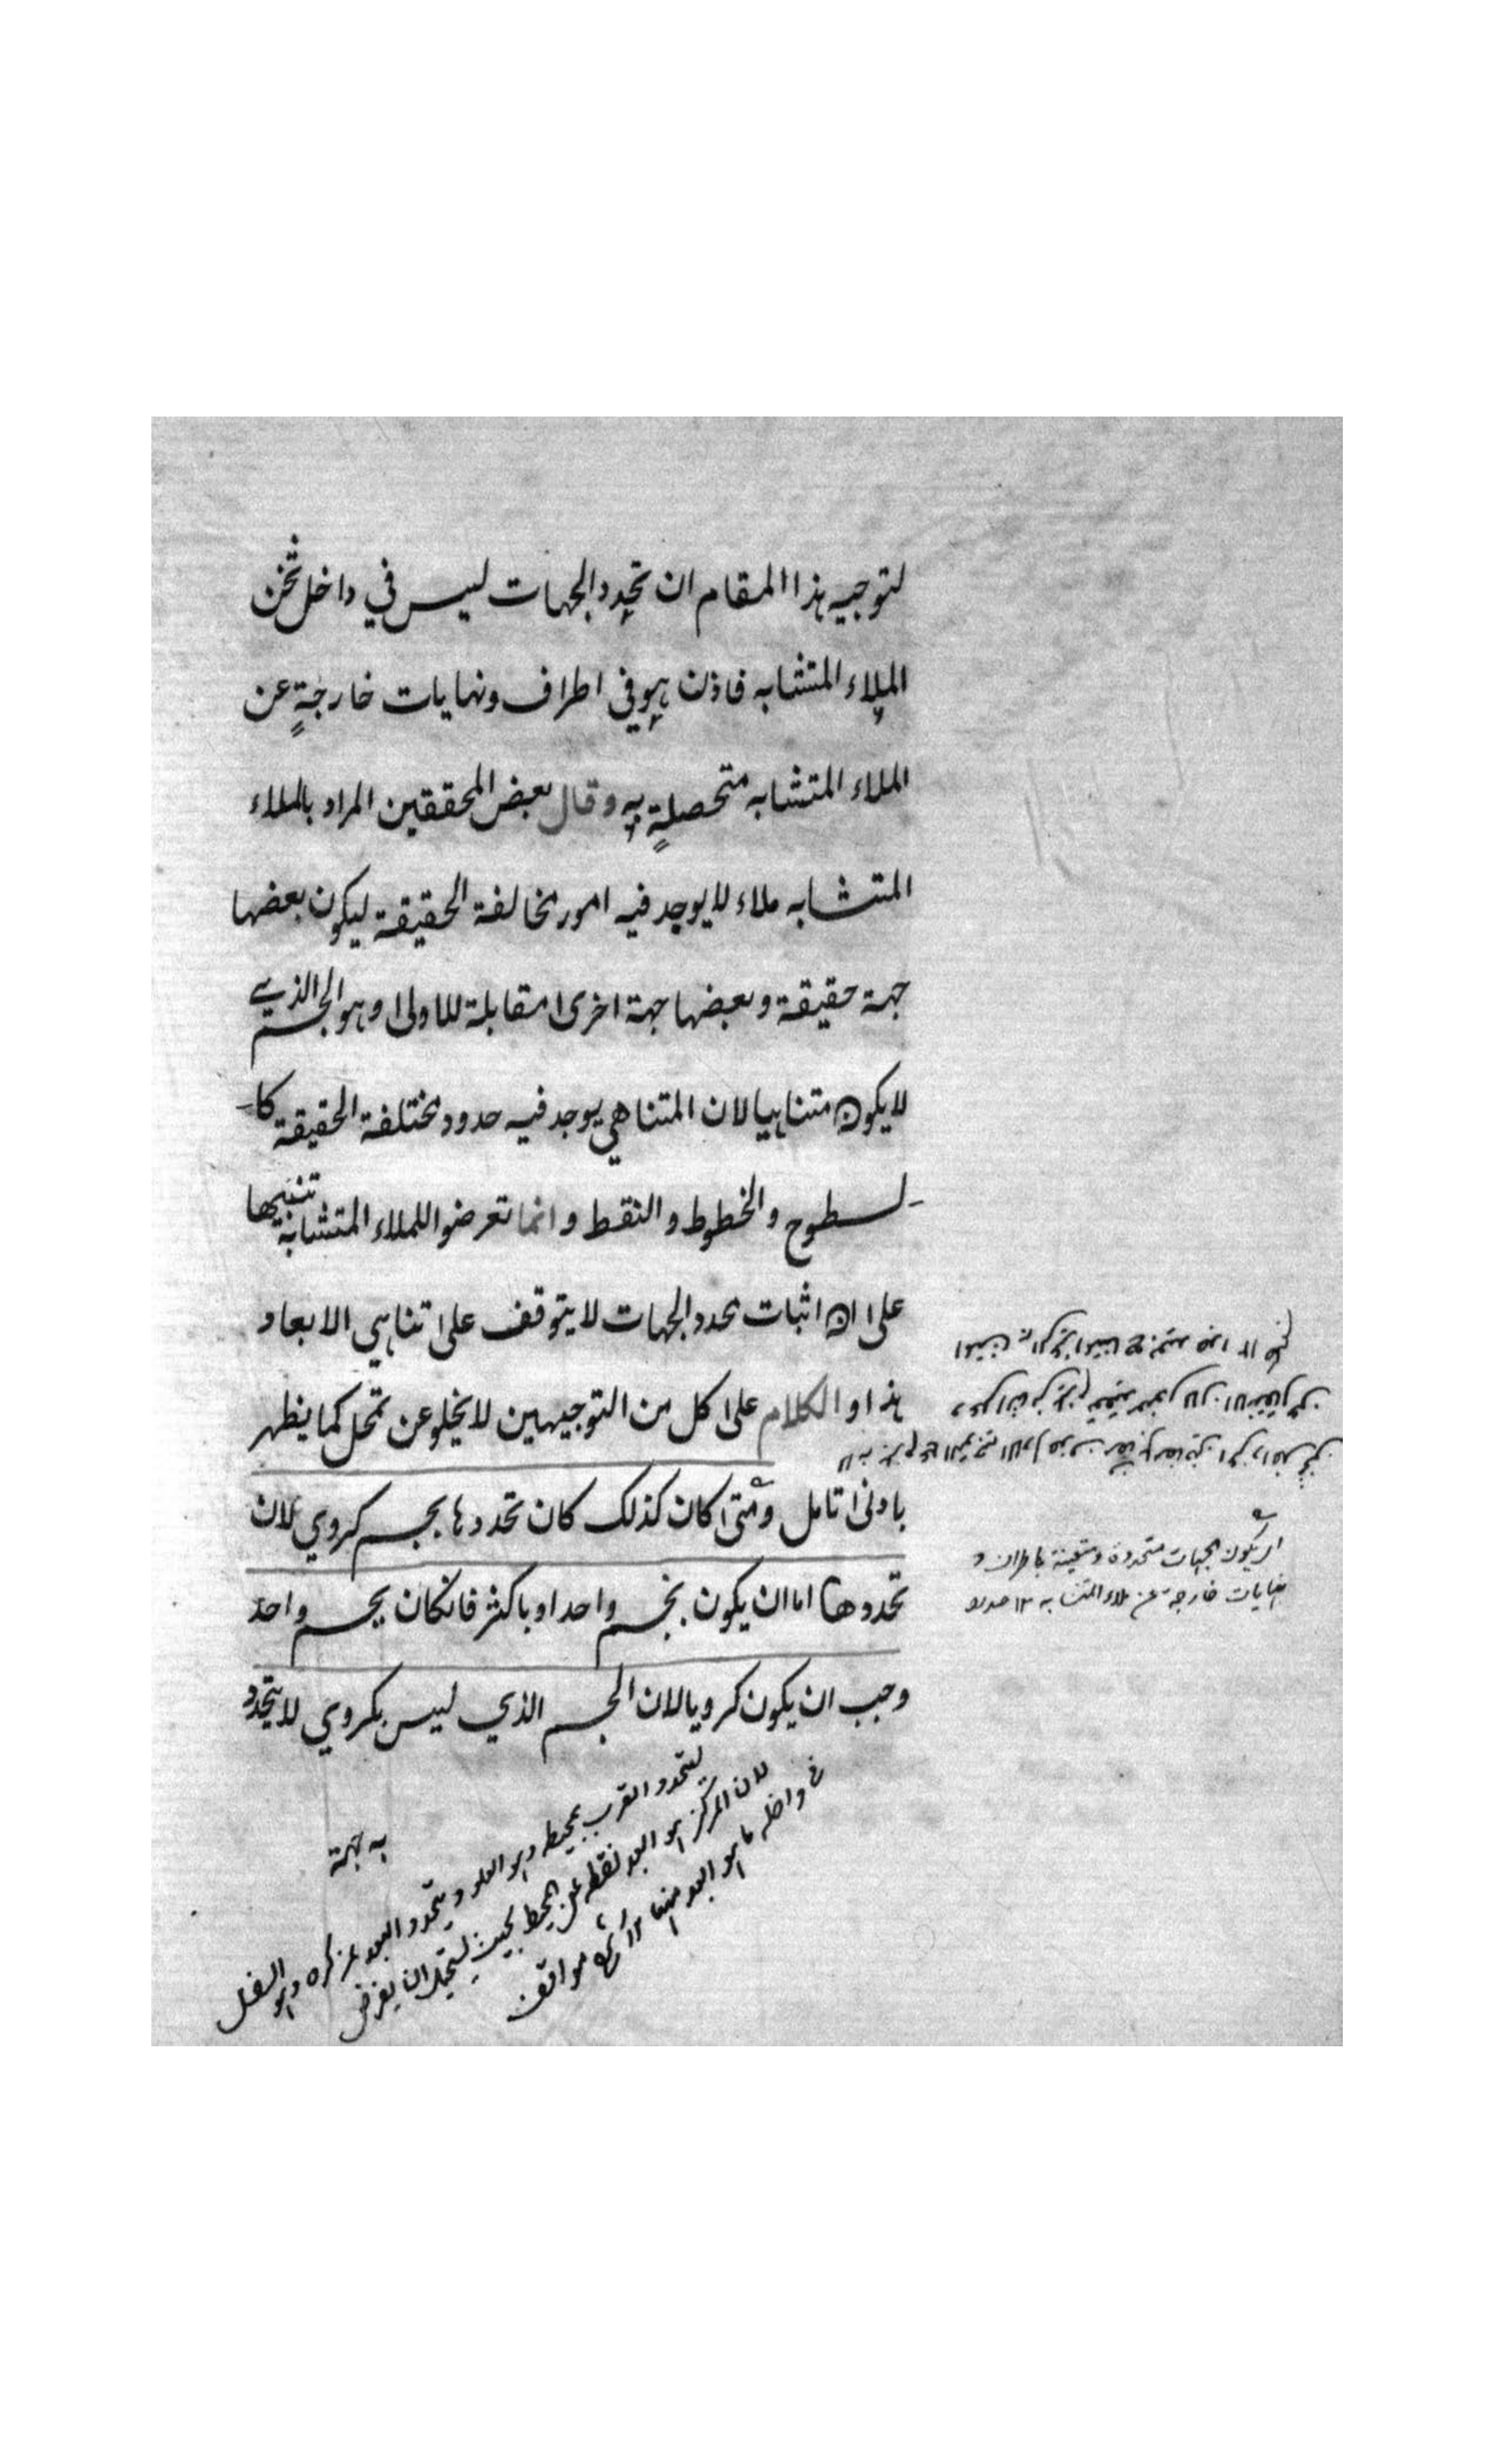 لتوجيه هذا المقام ان تحدد الجهات ليس في داخل ثخن
الملاء المتشابه فاذن هو في اطراف ونهايات خارجةٍ عن
الملاء المتشابه متحصلةٍ به وقال بعض المحققين المراد بالملاء
المتشابه ملاء لا يوجد فيه امور مخالفة الحقيقة ليكون بعضها
جهة حقيقة وبعضها جهة اخرى مقابلة للاولى وهو الجسم الذي
لا يكون متناهيا لان المتناهي يوجد فيه حدود مختلفة الحقيقة كا
لسطوح والخطوط والنقط وانما تعرضوا للملاء المتشابه تنبيها
على ان اثبات محدد الجهات لا يتوقف على تناهي الابعاد
هذا والكلام على كل من التوجيهين لا يخلو عن تمحل كما يظهر
بادنى تامل ومتى كان كذلك كان تحددها بجسم كروي لان
تحددها اما ان يكون بجسم واحد او باكثر فان كان بجسم واحد
وجب ان يكون كرويا لان الجسم الذي ليس بكروي لا يتحدد
به جهة
اي يكون الجهات متحددة ومتعينة باطراف و
نهايات خارجة عن ملاء المتشابه ١٢
ليتحدد القرب بمحيطه وهو العلو ويتحدد البعد بمركزه وهو السفل
لان المركز هو ابعد نقطة عن المحيط بحيث يستحيل ان يفرض
في داخله ما هو ابعد منها ١٢ مواقف